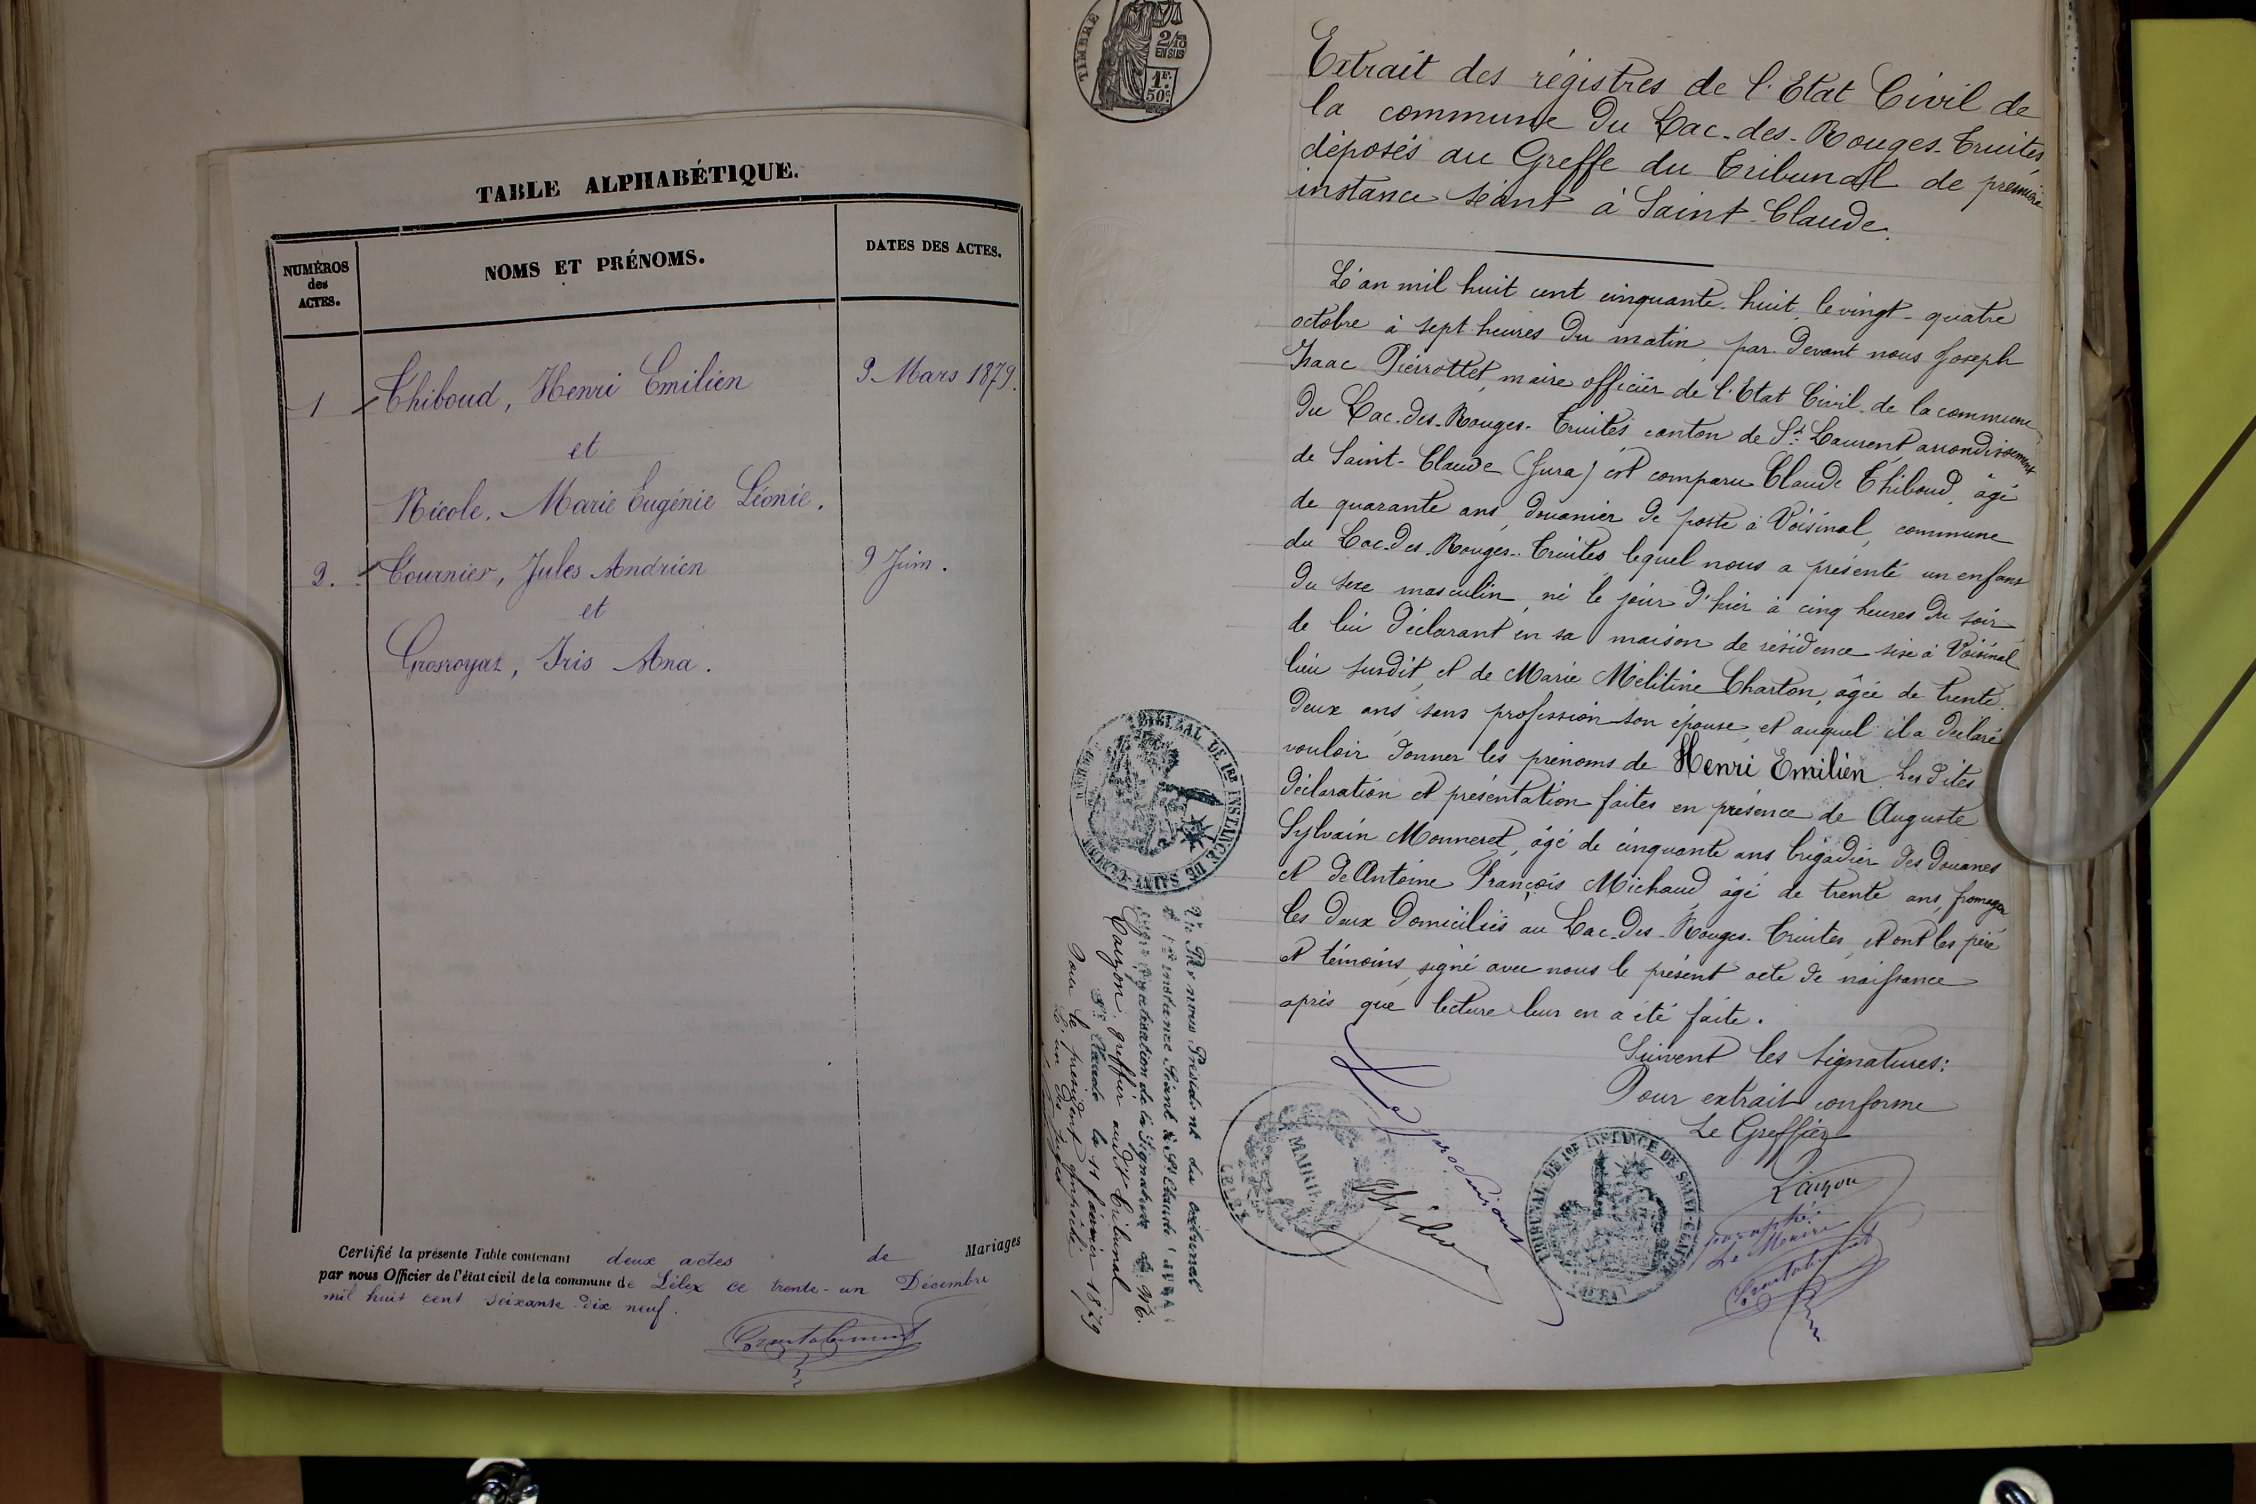 TABLE ALPHABÉTIQUE.
NUMÉROS
des
ACTES.
NOMS ET PRÉNOMS.
DATES DES ACTES.
1
Thiboud, Henri Emilien
9 Mars 1879.
et
Nicole. Marie Eugénie Léonie.
2.
Tournier, Jules Andrien
9 Juin.
et
Grosroyaz, Iris Ana.
Certifié la présente Table contenant deux actes de Mariages
par nous Officier de l'état civil de la commune de Lélex ce trente-un Décembre
mil huit cent soixante-dix neuf.
TIMBRE
2/10
EN SUS
1F.
50c
Extrait des régistres de l'Etat Civil de
la commune du Lac-des-Rouges-Truites,
déposés au Greffe du Tribunal de première
instance séant à Saint-Claude.
L'an mil huit cent cinquante-huit, le vingt-quatre
octobre à sept heures du matin, par devant nous Joseph
Isaac Pierrottet, maire officier de l'Etat Civil de la commune
du Lac-des-Rouges-Truites canton de St Laurent arrondissement
de Saint-Claude (Jura) est comparu Claude Thiboud, âgé
de quarante ans, douanier de poste à Voisinal, commune
du Lac-des-Rouges-Truites lequel nous a présenté un enfant
du sexe masculin, né le jour d'hier à cinq heures du soir
de lui déclarant en sa maison de résidence sise à Voisinal
lieu susdit, et de Marie Mélitine Charton, âgée de trente
deux ans, sans profession son épouse, et auquel il a déclaré
vouloir donner les prénoms de Henri Emilien. Les dites
déclaration et présentation faites en présence de Auguste
Sylvain Monneret, âgé de cinquante ans brigadier des douanes
et de Antoine François Michaud, âgé de trente ans, fromager
les deux domiciliés au Lac-des-Rouges-Truites, et ont les père
et témoins, signé avec nous le présent acte de naissance
après que lecture leur en a été faite.
Suivent les signatures:
Pour extrait conforme
Le Greffier
paraphé:
Le Maire
TRIBUNAL DE 1RE INSTANCE DE SAINT-CLAUDE
Vu Par nous Président du tribunal
de 1re instance Séant à St Claude (JURA)
pour légalisation de la Signature de Mr.
greffier audit tribunal
St Claude le 11 février 1879
Pour le président empêché
L'un des juges
MAIRIE
LELEX
Le produisant
TRIBUNAL DE 1RE INSTANCE DE SAINT-CLAUDE
(JURA)